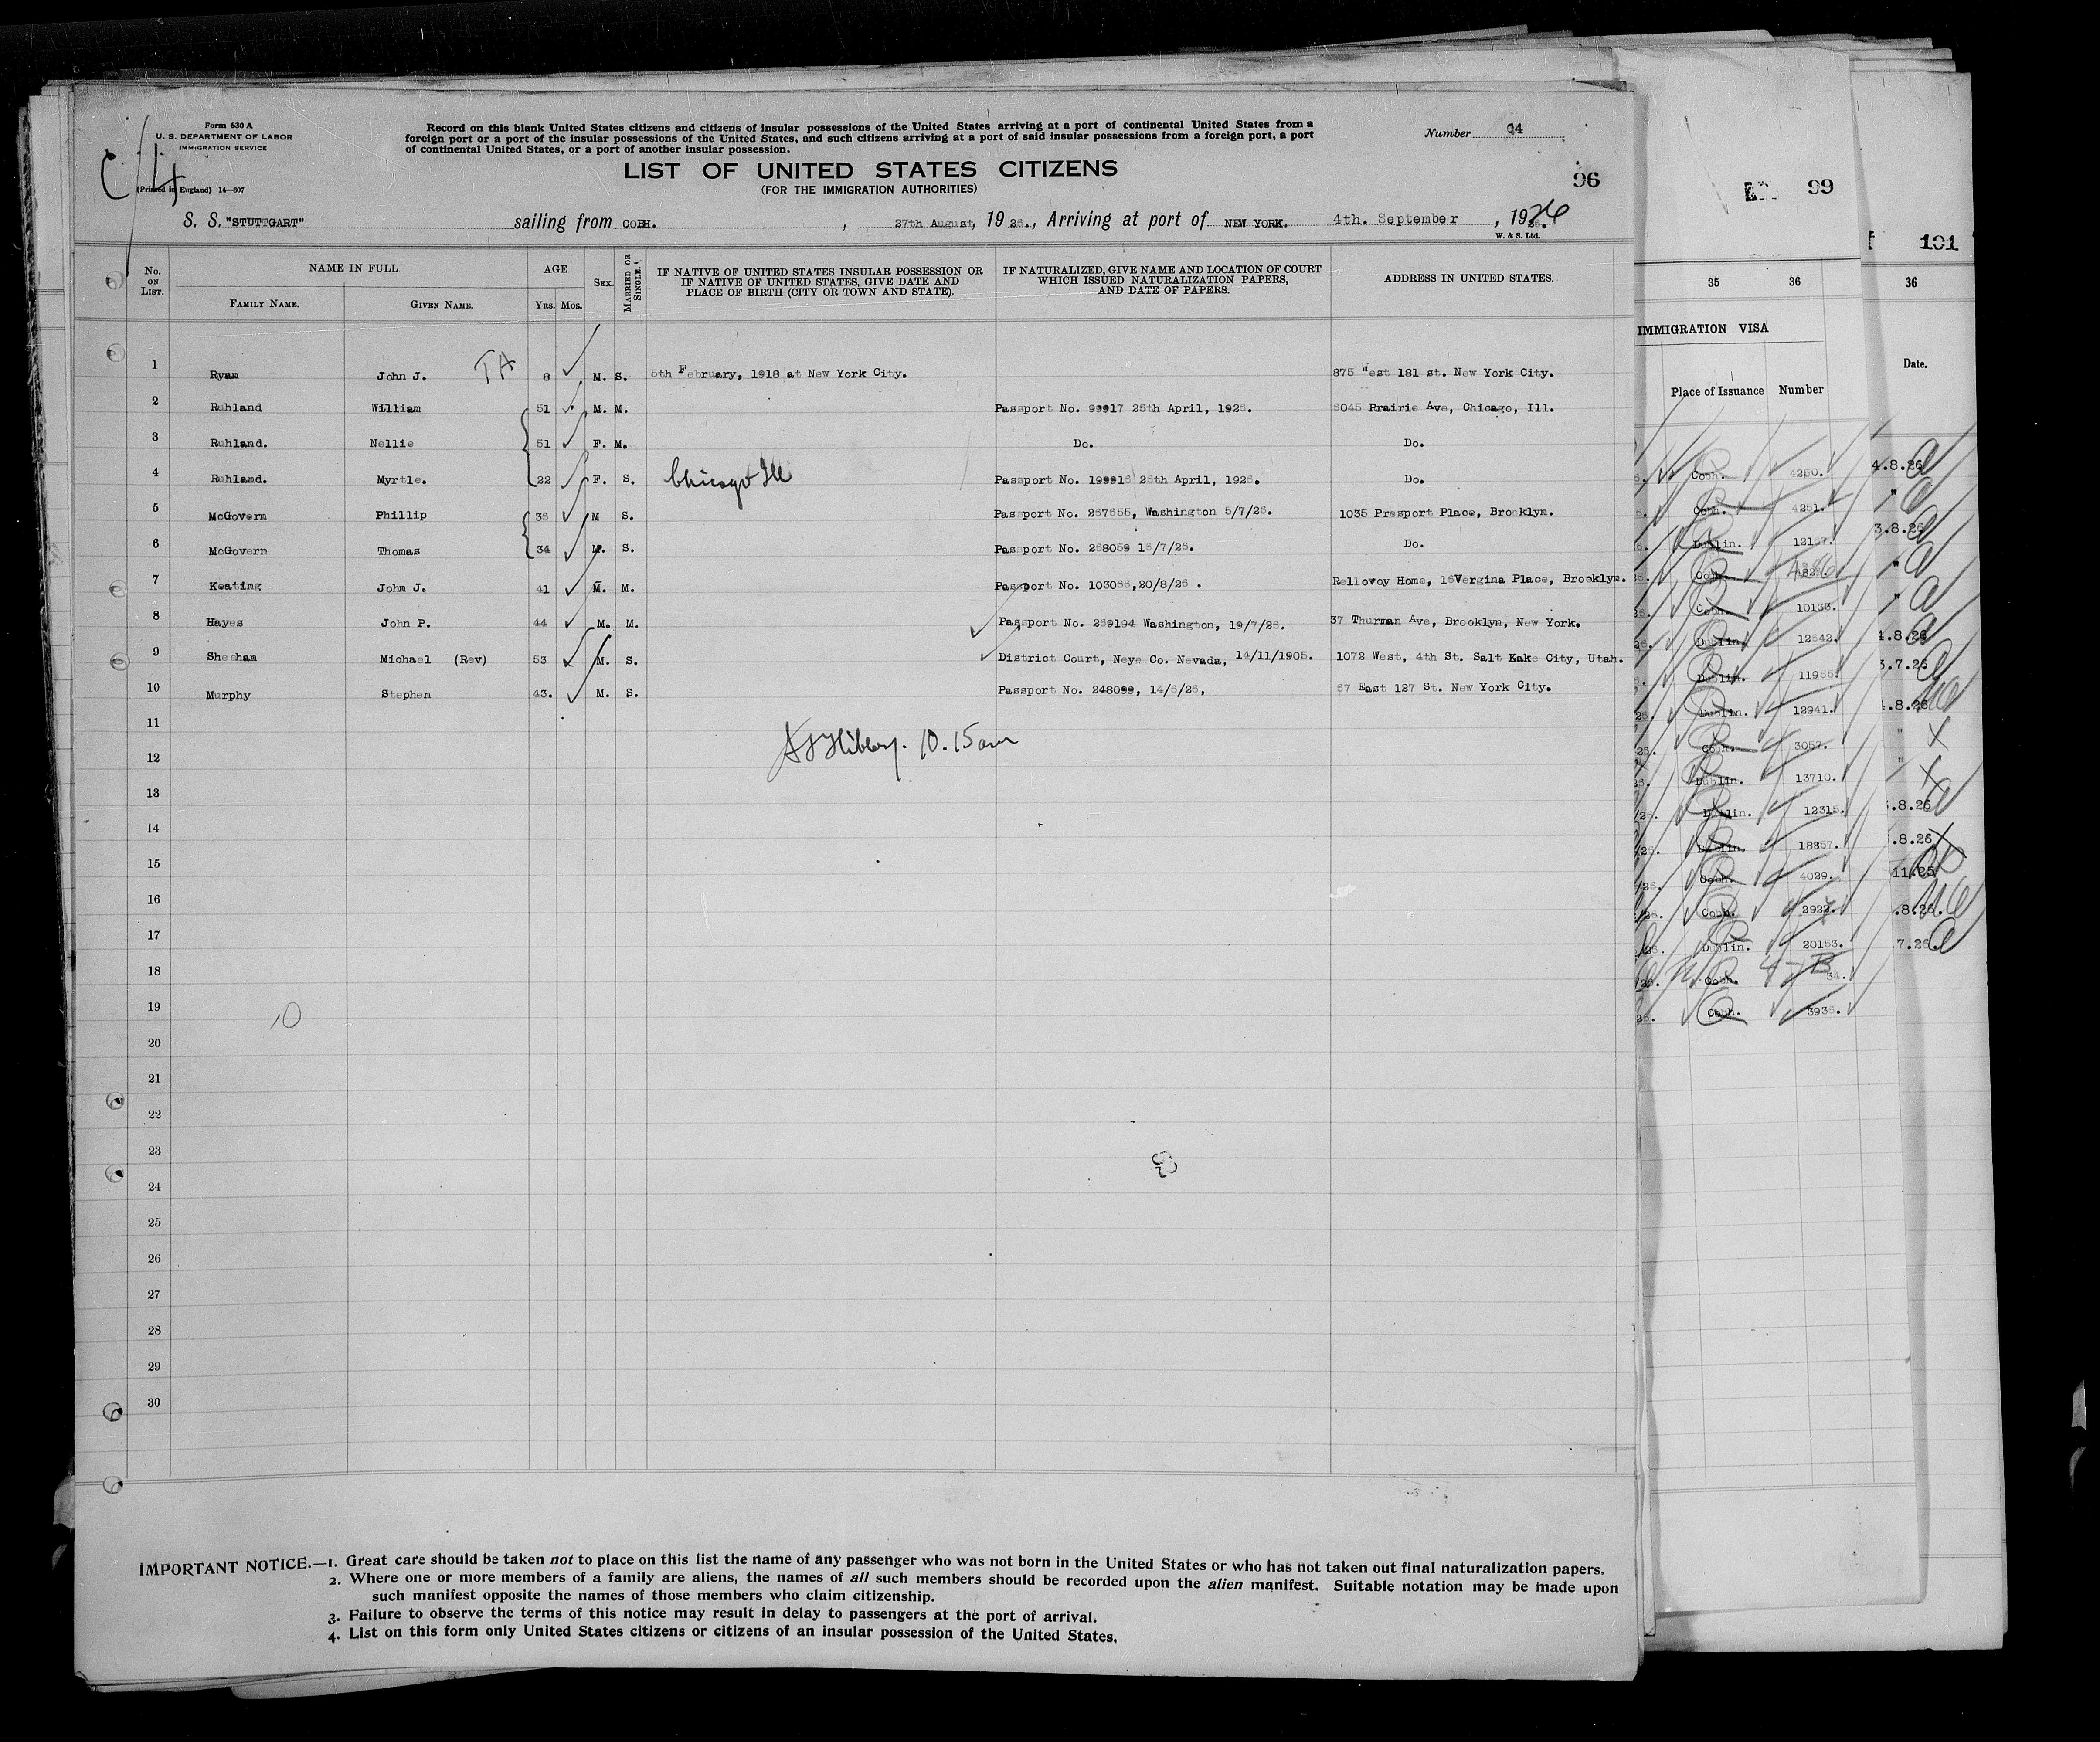 Form 630 A
U. S. DEPARTMENT OF LABOR
IMMIGRATION SERVICE
(Printed in England) 14—607
Record on this blank United States citizens and citizens of insular possessions of the United States arriving at a port of continental United States from a
foreign port or a port of the insular possessions of the United States, and such citizens arriving at a port of said insular possessions from a foreign port, a port
of continental United States, or a port of another insular possession.
Number 14
LIST OF UNITED STATES CITIZENS
(FOR THE IMMIGRATION AUTHORITIES)
96
S. S. "STUTTGART" sailing from COBH. , 27th August, 19 26., Arriving at port of NEW YORK. 4th. September , 1926
W. & S. Ltd.
No. ON LIST. NAME IN FULL AGE SEX. MARRIED OR SINGLE.
FAMILY NAME. GIVEN NAME. YRS. MOS.
IF NATIVE OF UNITED STATES INSULAR POSSESSION OR
IF NATIVE OF UNITED STATES, GIVE DATE AND
PLACE OF BIRTH (CITY OR TOWN AND STATE).
IF NATURALIZED, GIVE NAME AND LOCATION OF COURT
WHICH ISSUED NATURALIZATION PAPERS,
AND DATE OF PAPERS.
ADDRESS IN UNITED STATES.
1 Ryan John J. TA 8 M. S. 5th February, 1918 at New York City. 875 West 181 st. New York City.
2 Ruhland William 51 M. M. Passport No. 99917 25th April, 1926. 6045 Prairie Ave, Chicago, Ill.
3 Ruhland. Nellie 51 F. M. Do. Do.
4 Ruhland. Myrtle. 22 F. S. Chicago Ill Passport No. 199916 26th April, 1926. Do.
5 McGovern Phillip 36 M S. Passport No. 267655, Washington 5/7/26. 1035 Presport Place, Brooklyn.
6 McGovern Thomas 34 M. S. Passport No. 268059 16/7/26. Do.
7 Keating John J. 41 M. M. Passport No. 103066,20/8/26 . Rellovoy Home, 16Vergina Place, Brooklyn.
8 Hayes John P. 44 M. M. Passport No. 269194 Washington, 19/7/26. 37 Thurman Ave, Brooklyn, New York.
9 Sheehan Michael (Rev) 53 M. S. District Court, Neye Co. Nevada, 14/11/1905. 1072 West, 4th St. Salt Kake City, Utah.
10 Murphy Stephen 43. M. S. Passport No. 248099, 14/6/26, 67 East 127 St. New York City.
11
10.15 am
12
13
14
15
16
17
18
19
10
20
21
22
23
24
25
26
27
28
29
30
IMPORTANT NOTICE.—1. Great care should be taken not to place on this list the name of any passenger who was not born in the United States or who has not taken out final naturalization papers.
2. Where one or more members of a family are aliens, the names of all such members should be recorded upon the alien manifest. Suitable notation may be made upon
such manifest opposite the names of those members who claim citizenship.
3. Failure to observe the terms of this notice may result in delay to passengers at the port of arrival.
4. List on this form only United States citizens or citizens of an insular possession of the United States.
99
35 36
IMMIGRATION VISA
Place of Issuance Number
Cobh. 4250.
Cobh. 4251.
Dublin. 12157.
Cobh.
Cobh. 10133.
Dublin. 12542.
Dublin. 11955.
Dublin. 12941.
Cobh. 3057.
Dublin. 13710.
Dublin. 12315.
Dublin. 18857.
Cobh. 4029.
Cobh. 2922.
Dublin. 20153.
Cobh. 34.
Cobh. 3936.
101
36
Date.
4.8.26
"
3.8.26
"
"
4.8.26
3.7.26
.8.26
"
"
.8.26
.8.26
11.25
.8.26.
7.26.